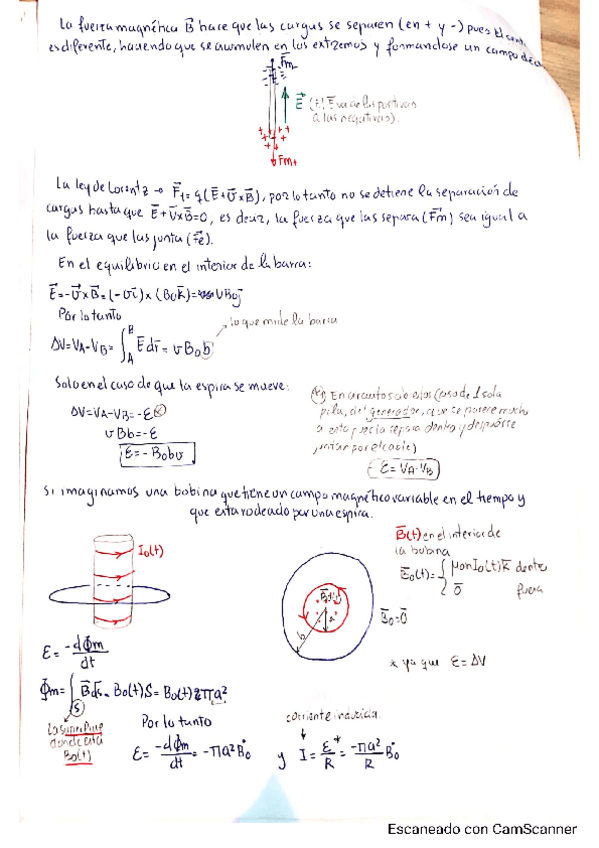 La fuerza magnética B⃗ hace que las cargas se separen (en + y -) pues el
es diferente, haciendo que se acumulen en los extremos y formandose un campo
F⃗m-
E⃗ (*) E va de las positivas
a las negativas).
F⃗m+
La ley de Lorentz → F⃗ = q(E⃗+v⃗×B⃗), por lo tanto no se detiene la separación de
cargas hasta que E⃗+v⃗×B⃗=0, es decir, la fuerza que las separa (F⃗m) sea igual a
la fuerza que las junta (F⃗e).
En el equilibrio en el interior de la barra:
E⃗=-v⃗×B⃗=(-vi⃗)×(B0k⃗)= vB0j⃗
Por lo tanto
lo que mide la barra
ΔV=VA-VB=∫_A^B E⃗dr⃗=vB0b
Solo en el caso de que la espira se mueve:
ΔV=VA-VB=-ε(*)
vBb=-ε
ε=-B0bv
(*) En circuitos (caso de 1 sola
pila, del generador, que se parece mucho
a esto pues la separa dentro y después se
juntan por el cable)
ε=VA-VB
Si imaginamos una bobina que tiene un campo magnético variable en el tiempo y
que esta rodeado por una espira.
I0(t)
B⃗(t) en el interior de
la bobina
B⃗0(t)={ μ0nI0(t)k⃗ dentro
0⃗ fuera
B⃗0=0⃗
b
a
* ya que ε=ΔV
ε=-dΦm/dt
Φm=∫_(S) B⃗ds⃗=B0(t)S=B0(t)πa²
La superficie
donde está
B0(t)
Por lo tanto
ε=-dΦm/dt=-πa²Ḃ0
corriente inducida
y I=ε*/R=-πa²/R Ḃ0
Escaneado con CamScanner